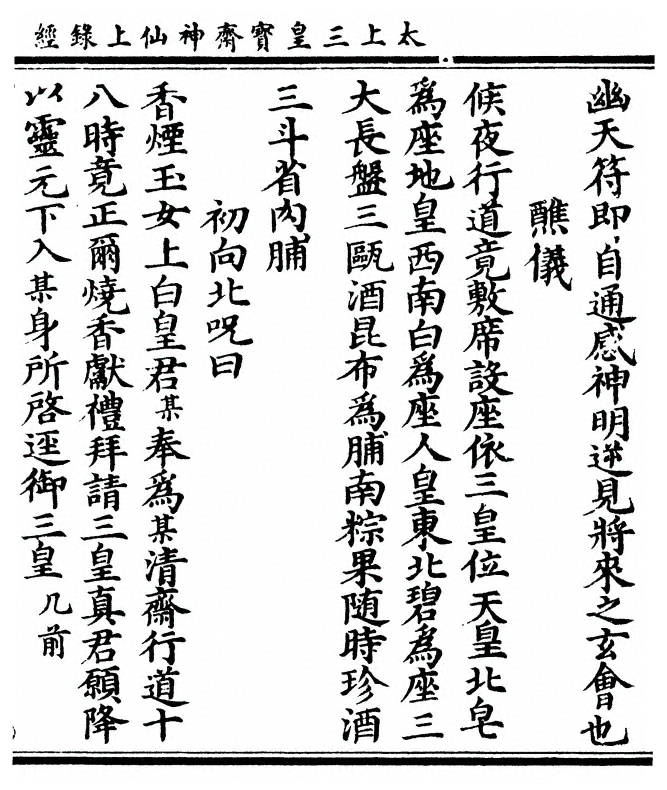 太上三皇寶齋神仙上錄經
幽天符即自通感神明逆見將來之玄會也
醮儀
候夜行道竟敷席設座依三皇位天皇北皂
爲座地皇西南白爲座人皇東北碧爲座三
大長盤三甌酒昆布爲脯南粽果随時珍酒
三斗省肉脯
初向北呪曰
香煙玉女上白皇君某奉爲某清齋行道十
八時竟正爾燒香獻禮拜請三皇真君願降
以靈元下入某身所啓逕御三皇几前